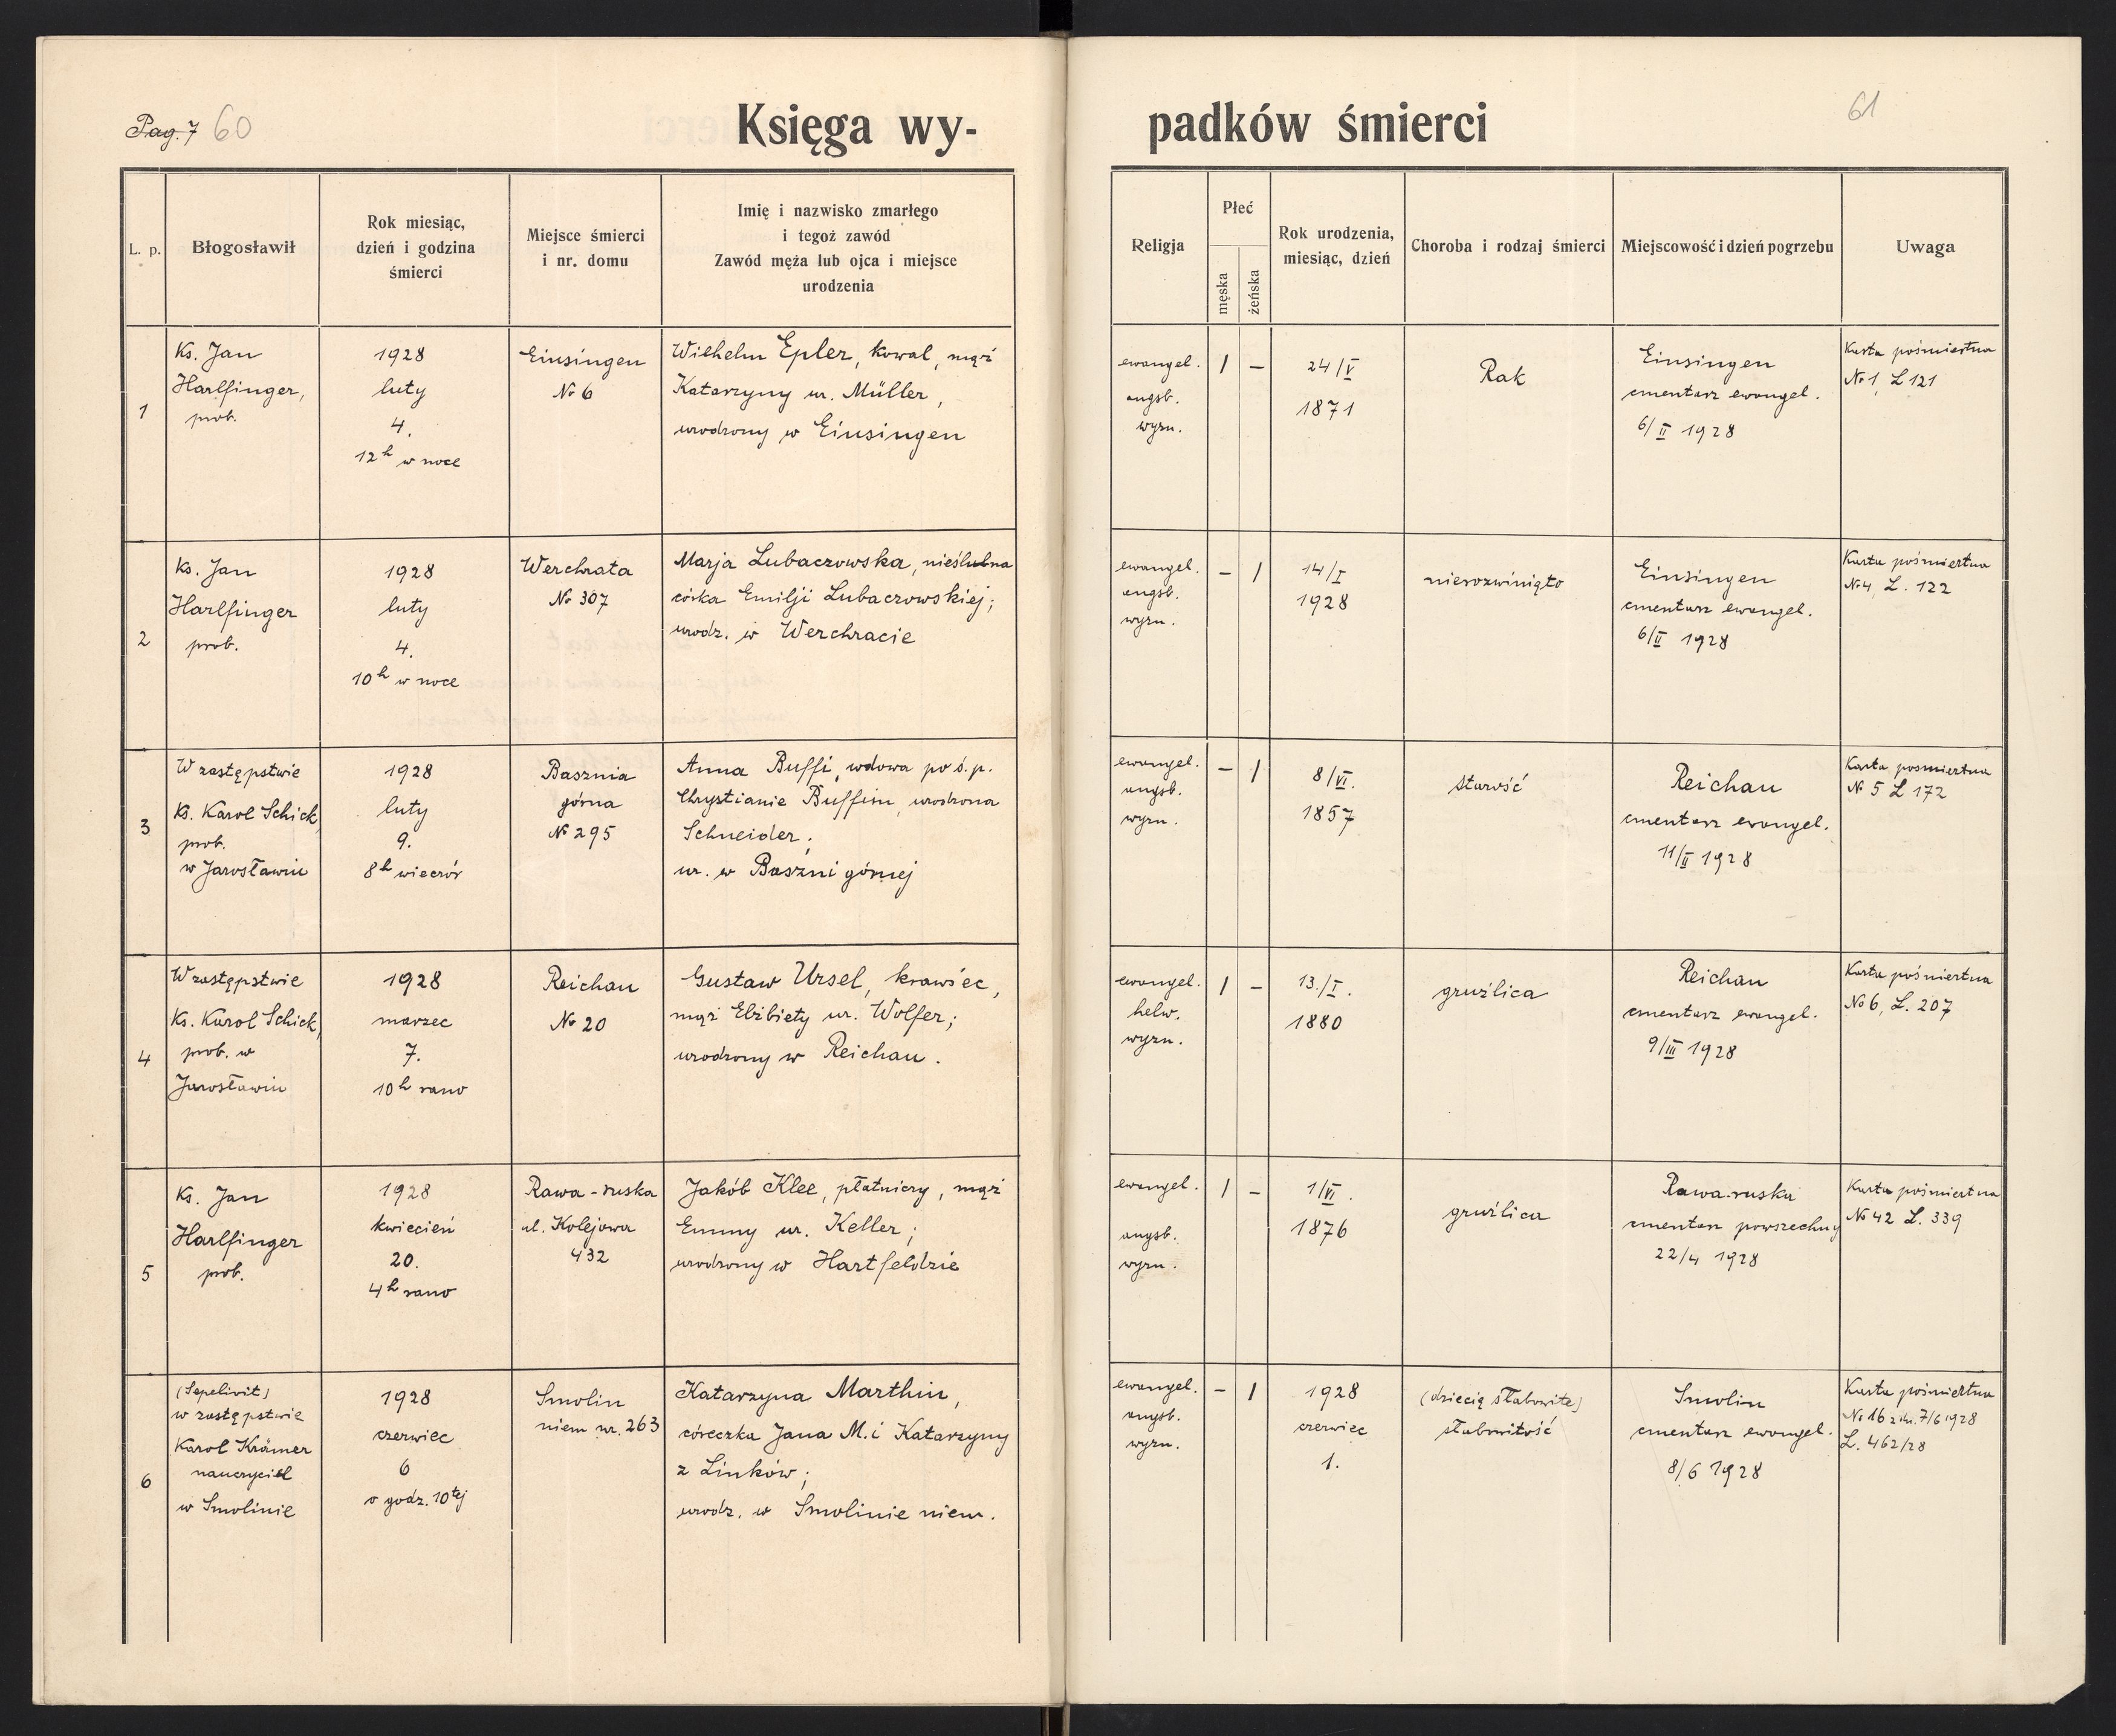 Pag. 7 60
Księga wy-
L. p.
Błogosławił
Rok miesiąc,
dzień i godzina
śmierci
Miejsce śmierci
i nr. domu
Imię i nazwisko zmarłego
i tegoż zawód
Zawód męża lub ojca i miejsce
urodzenia
1
Ks. Jan
Harlfinger,
prob.
1928
luty
4.
12h w noce
Einsingen
№ 6
Wilhelm Epler, kowal, mąż
Katarzyny ur. Müller,
urodzony w Einsingen
2
Ks. Jan
Harlfinger
prob.
1928
luty
4.
10h w noce
Werchrata
№ 307
Marja Lubaczowska, nieślubna
córka Emilji Lubaczowskiej;
urodz. w Werchracie
3
W zastępstwie
Ks. Karol Schick,
prob.
w Jarosławiu
1928
luty
9.
8h wieczór
Basznia
górna
№ 295
Anna Buffi, wdowa po ś.p.
Chrystianie Buffim, urodzona
Schneider;
ur. w Baszni górnej
4
W zastępstwie
Ks. Karol Schick,
prob. w
Jarosławiu
1928
marzec
7.
10h rano
Reichau
№ 20
Gustaw Ursel, krawiec,
mąż Elżbiety ur. Wolfer;
urodzony w Reichau.
5
Ks. Jan
Harlfinger
prob.
1928
kwiecień
20.
4h rano
Rawa-ruska
ul. Kolejowa
432
Jakób Klee, płatniczy, mąż
Emmy ur. Keller;
urodzony w Hartfeldzie
6
(Sepelivit)
w zastępstwie
Karol Krämer
nauczyciel
w Smolinie
1928
czerwiec
6
o godz. 10tej
Smolin
niem nr. 263
Katarzyna Marthin,
córeczka Jana M. i Katarzyny
z Linków;
urodz. w Smolinie niem.
padków śmierci
61
Religja
Płeć
męska
żeńska
Rok urodzenia,
miesiąc, dzień
Choroba i rodzaj śmierci
Miejscowość i dzień pogrzebu
Uwaga
ewangel.
augsb.
wyzn.
1 –
24/V
1871
Rak
Einsingen
cmentarz ewangel.
6/II 1928
Karta pośmiertna
№ 1, L 121
ewangel.
augsb.
wyzn.
– 1
14/I
1928
nierozwinięto
Einsingen
cmentarz ewangel.
6/II 1928
Karta pośmiertna
№ 4, L. 122
ewangel.
augsb.
wyzn.
– 1
8/VI.
1857
starość
Reichau
cmentarz ewangel.
11/II 1928
Karta posmiertna
№ 5 L 172
ewangel.
helw.
wyzn.
1 –
13./I.
1880
gruźlica
Reichau
cmentarz ewangel.
9/III 1928
Karta pośmiertna
№ 6, L. 207
ewangel.
augsb.
wyzn.
1 –
1/VI.
1876
gruźlica
Rawa-ruska
cmentarz powszechny
22/4 1928
Karta pośmiertna
№ 42 L. 339
ewangel.
augsb.
wyzn.
– 1
1928
czerwiec
1.
(dziecię słabowite)
słabowitość
Smolin
cmentarz ewangel.
8/6 1928
Karta pośmiertna
№ 16 z dn. 7/6 1928
L. 462/28